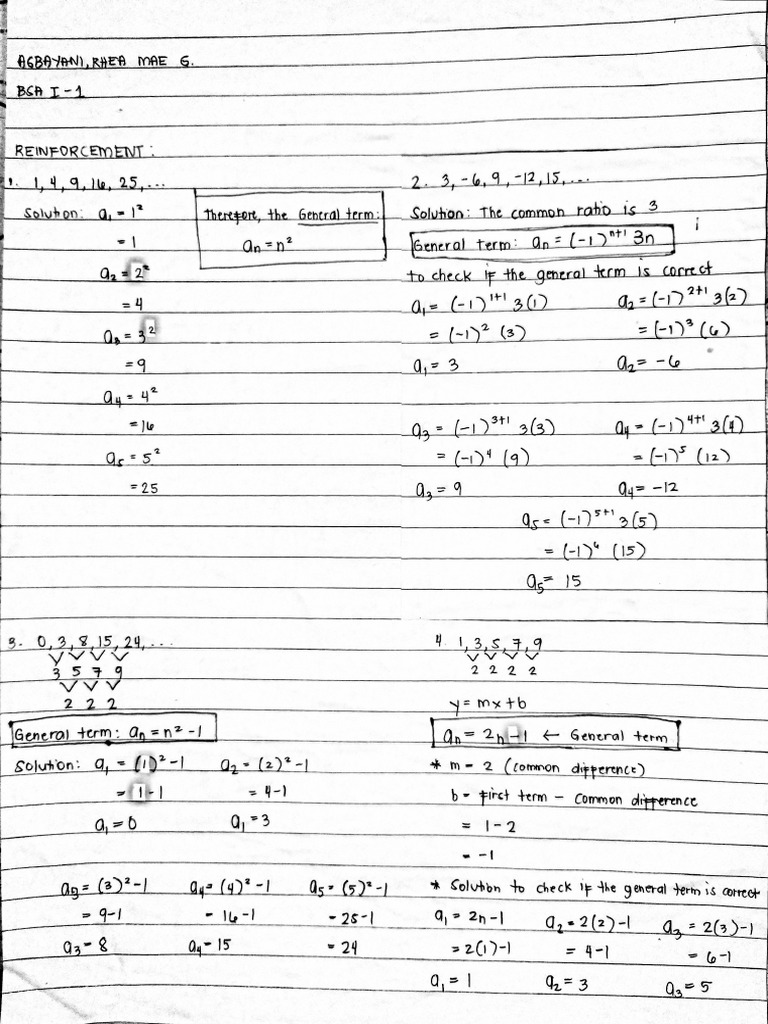 AGBAYANI, RHEA MAE G.
BSA I-1
REINFORCEMENT:
1. 1, 4, 9, 16, 25, ...
Solution: a₁ = 1²
= 1
a₂ = 2²
= 4
a₃ = 3²
= 9
a₄ = 4²
= 16
a₅ = 5²
= 25
Therefore, the General term:
aₙ = n²
2. 3, -6, 9, -12, 15, ...
Solution: The common ratio is 3
General term: aₙ = (-1)ⁿ⁺¹ 3n
to check if the general term is correct
a₁ = (-1)¹⁺¹ 3(1)
= (-1)² (3)
a₁ = 3
a₂ = (-1)²⁺¹ 3(2)
= (-1)³ (6)
a₂ = -6
a₃ = (-1)³⁺¹ 3(3)
= (-1)⁴ (9)
a₃ = 9
a₄ = (-1)⁴⁺¹ 3(4)
= (-1)⁵ (12)
a₄ = -12
a₅ = (-1)⁵⁺¹ 3(5)
= (-1)⁶ (15)
a₅ = 15
3. 0, 3, 8, 15, 24, ...
3 5 7 9
2 2 2
General term: aₙ = n² - 1
Solution: a₁ = (1)² - 1
= 1 - 1
a₁ = 0
a₂ = (2)² - 1
= 4 - 1
a₁ = 3
a₃ = (3)² - 1
= 9 - 1
a₃ = 8
a₄ = (4)² - 1
= 16 - 1
a₄ = 15
a₅ = (5)² - 1
= 25 - 1
= 24
4. 1, 3, 5, 7, 9
2 2 2 2
y = mx + b
aₙ = 2n - 1 ← General term
* m = 2 (common difference)
b = first term - common difference
= 1 - 2
= -1
* Solution to check if the general term is correct
a₁ = 2n - 1
= 2(1) - 1
a₁ = 1
a₂ = 2(2) - 1
= 4 - 1
a₂ = 3
a₃ = 2(3) - 1
= 6 - 1
a₃ = 5